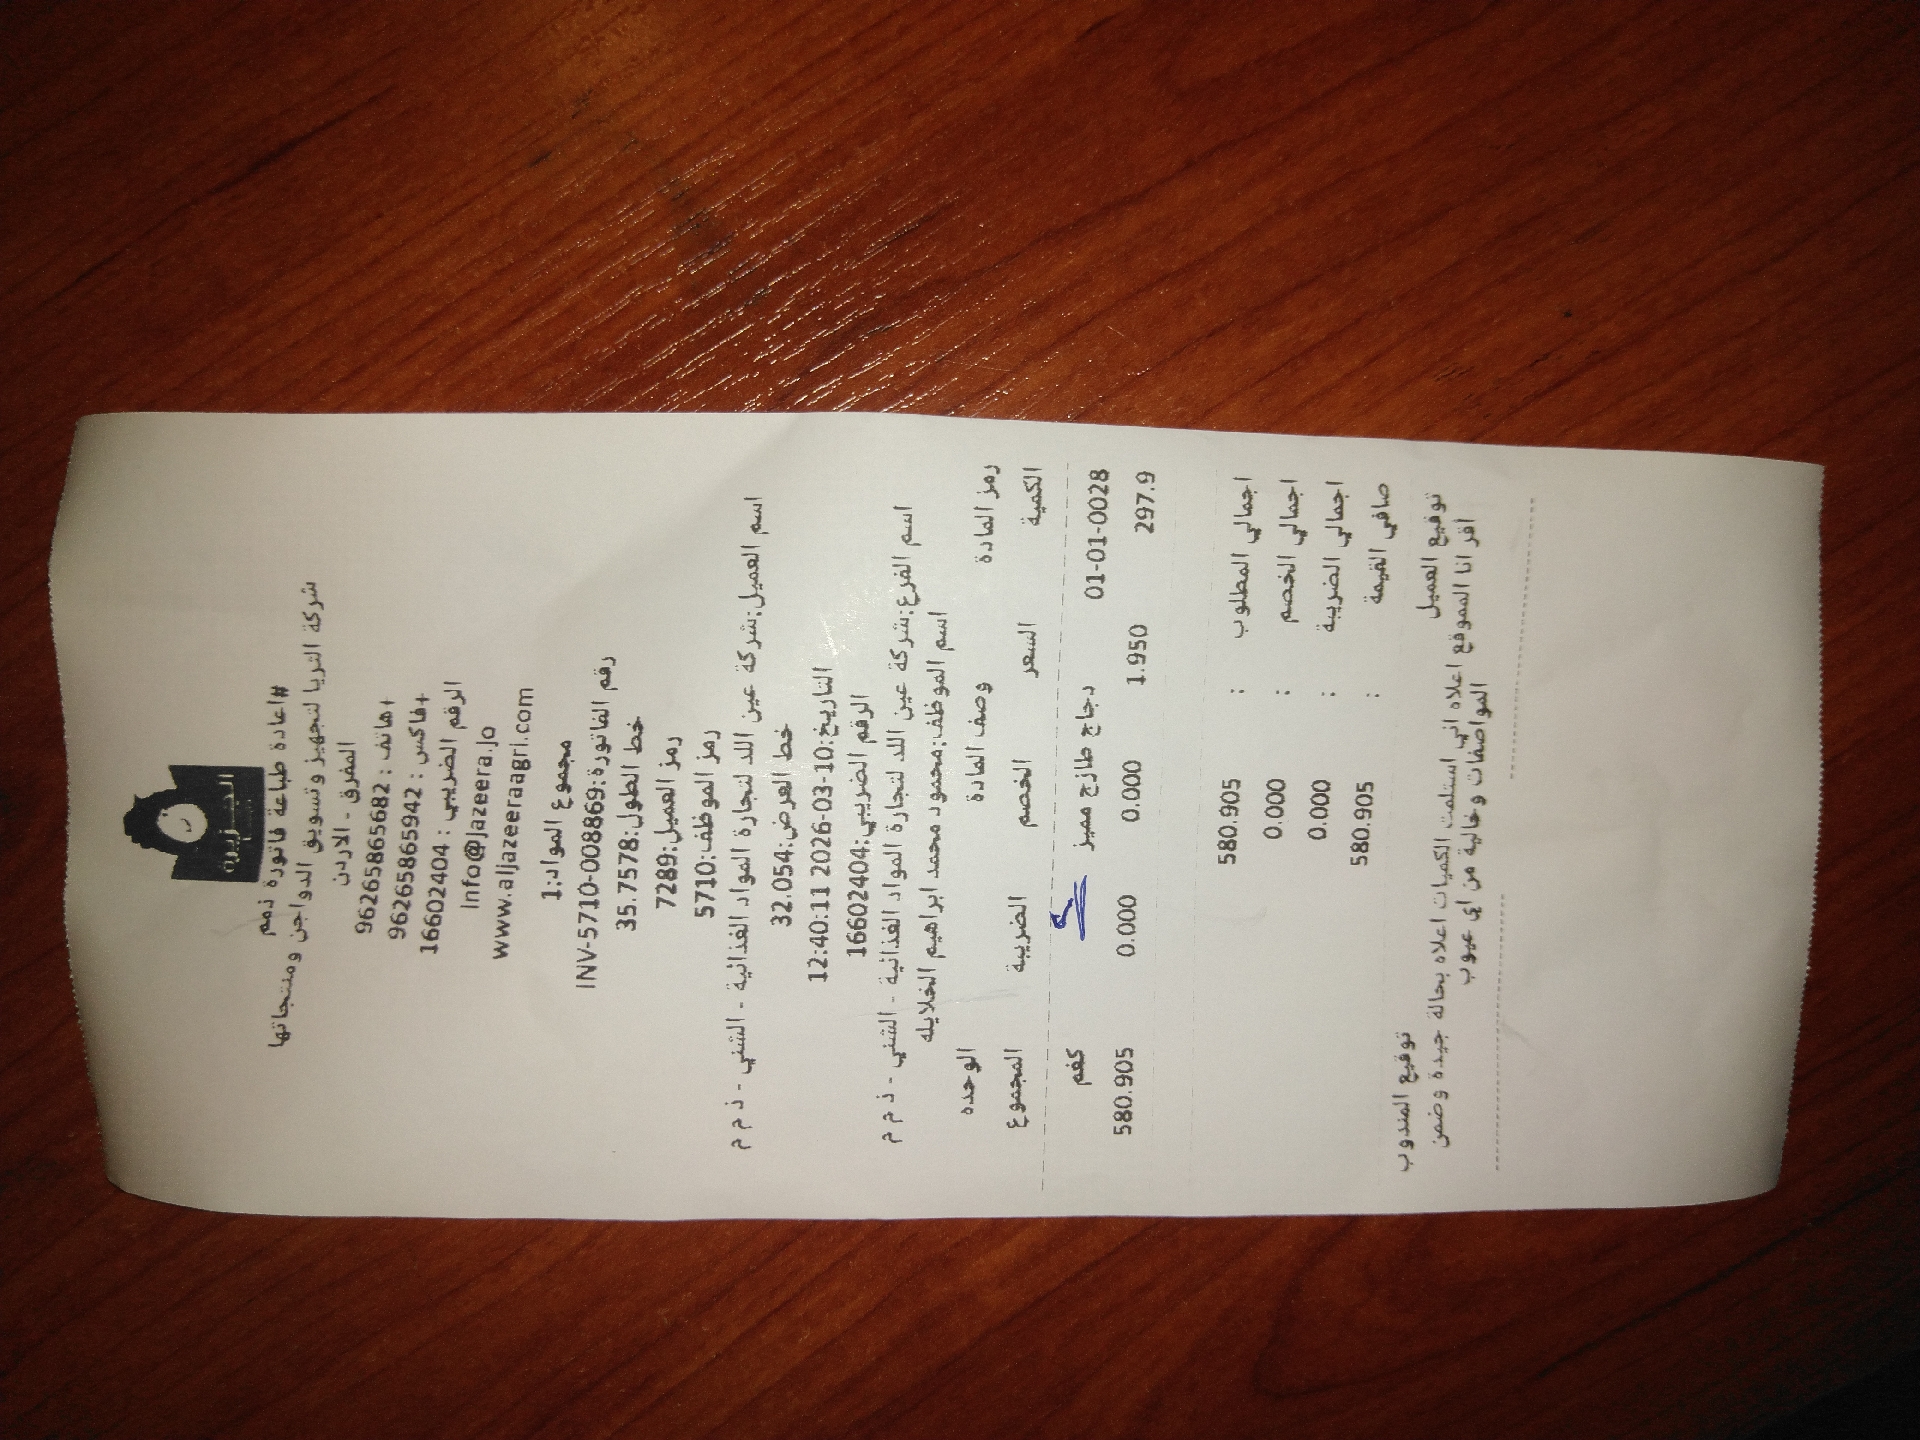 الجزيرة
#اعادة طباعة فاتورة ذمم
شركة الثريا لتجهيز وتسويق الدواجن ومنتجاتها
المفرق - الاردن
+هاتف : 96265865682
+فاكس : 96265865942
الرقم الضريبي : 16602404
Info@Jazeera.jo
www.aljazeeraagri.com
مجموع المواد:1
رقم الفاتورة:INV-5710-008869
خط الطول:35.7578
رمز العميل:7289
رمز الموظف:5710
اسم العميل:شركة عين اللد لتجارة المواد الغذائية - الشني - ذ م م
خط العرض:32.054
التاريخ:10-03-2026 12:40:11
الرقم الضريبي:16602404
اسم الفرع:شركة عين اللد لتجارة المواد الغذائية - الشني - ذ م م
اسم الموظف:محمود محمد ابراهيم الخلايله
رمز المادة وصف المادة الوحده
الكمية السعر الخصم الضريبة المجموع
01-01-0028 دجاج طازج مميز كغم
297.9 1.950 0.000 0.000 580.905
اجمالي المطلوب : 580.905
اجمالي الخصم : 0.000
اجمالي الضريبة : 0.000
صافي القيمة : 580.905
توقيع العميل توقيع المندوب
اقر انا الموقع اعلاه اني استلمت الكميات اعلاه بحالة جيدة وضمن
المواصفات وخالية من اي عيوب